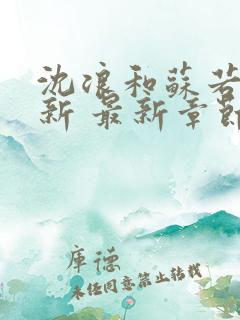 沈浪和蘇若
新 最新章節
库德
未经同意禁止转载